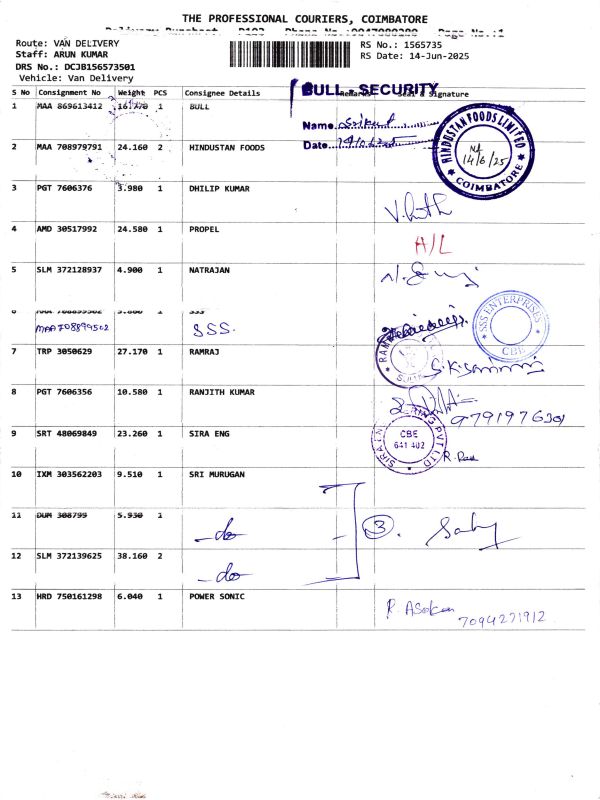 THE PROFESSIONAL COURIERS, COIMBATORE
Delivery Runsheet
Page No.:1
Route: VAN DELIVERY
RS No.: 1565735
Staff: ARUN KUMAR
RS Date: 14-Jun-2025
DRS No.: DCJB156573501
Vehicle: Van Delivery
S No Consignment No Weight PCS Consignee Details Remarks Seal & Signature
BULL - SECURITY
1 MAA 869613412 1 BULL
Name
Date
2 MAA 708979791 24.160 2 HINDUSTAN FOODS
HINDUSTAN FOODS LIMITED
14/6/25
COIMBATORE
3 PGT 7606376 3.980 1 DHILIP KUMAR
4 AMD 30517992 24.580 1 PROPEL
A/L
5 SLM 372128937 4.900 1 NATRAJAN
6 1 SSS
MAA708899502 SSS.
SSS ENTERPRISES
CBE
7 TRP 3050629 27.170 1 RAMRAJ
8 PGT 7606356 10.580 1 RANJITH KUMAR
9 SRT 48069849 23.260 1 SIRA ENG
CBE
641 402
10 IXM 303562203 9.510 1 SRI MURUGAN
11 DUM 308799 5.930 1
-do-
3.
12 SLM 372139625 38.160 2
-do-
13 HRD 750161298 6.040 1 POWER SONIC
R. Asokan
7094271912